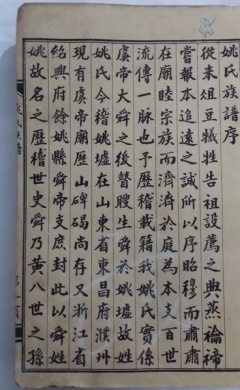 姚氏族譜序
從来俎豆犧牲告祖設薦之典蒸禴禘
嘗報本追遠之誠所以序昭穆而肅肅
在廟睦宗族而濟濟於庭為本支百世
流傳一脉也予歷稽載籍我姚氏實係
虞帝大舜之後瞽瞍生舜於姚墟故姓
姚氏今稽姚墟在山東省東昌府濮州
現有虞帝廟歷山碑碣尚存又浙江省
紹興府餘姚縣舜帝支庶封此以舜姓
姚故名之歷稽世史舜乃黃八世之孫